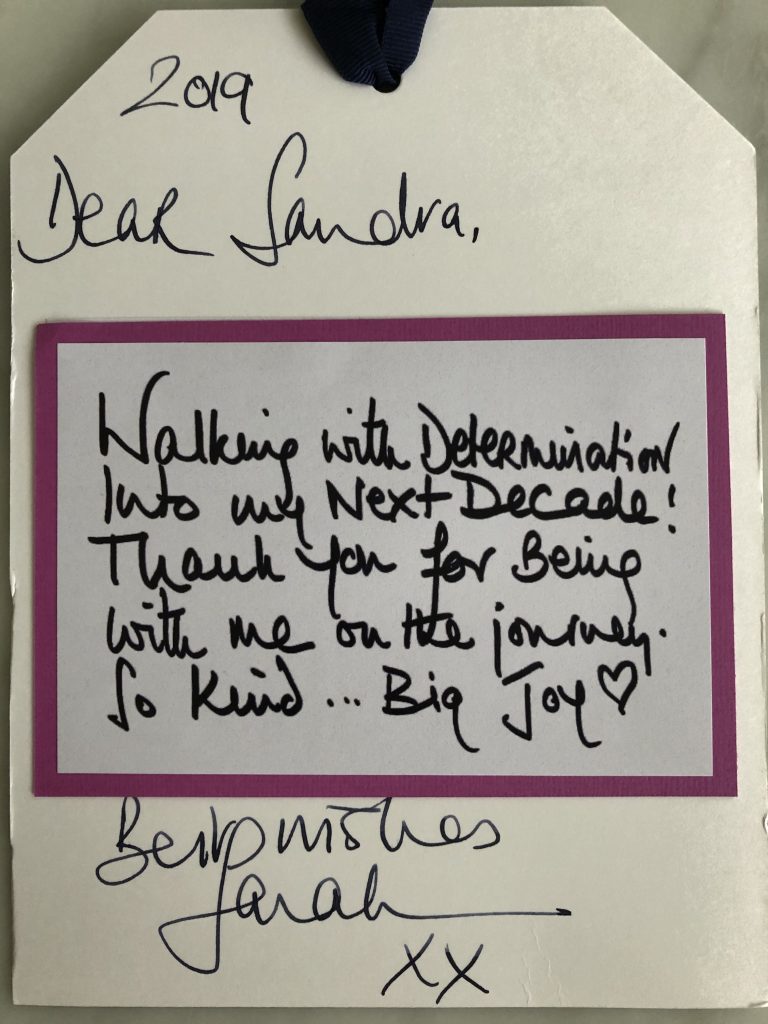 2019
Dear Sandra,
Walking with Determination
Into my Next Decade!
Thank you for Being
with me on the journey.
So Kind... Big Joy ♡
Best wishes
Sarah
XX